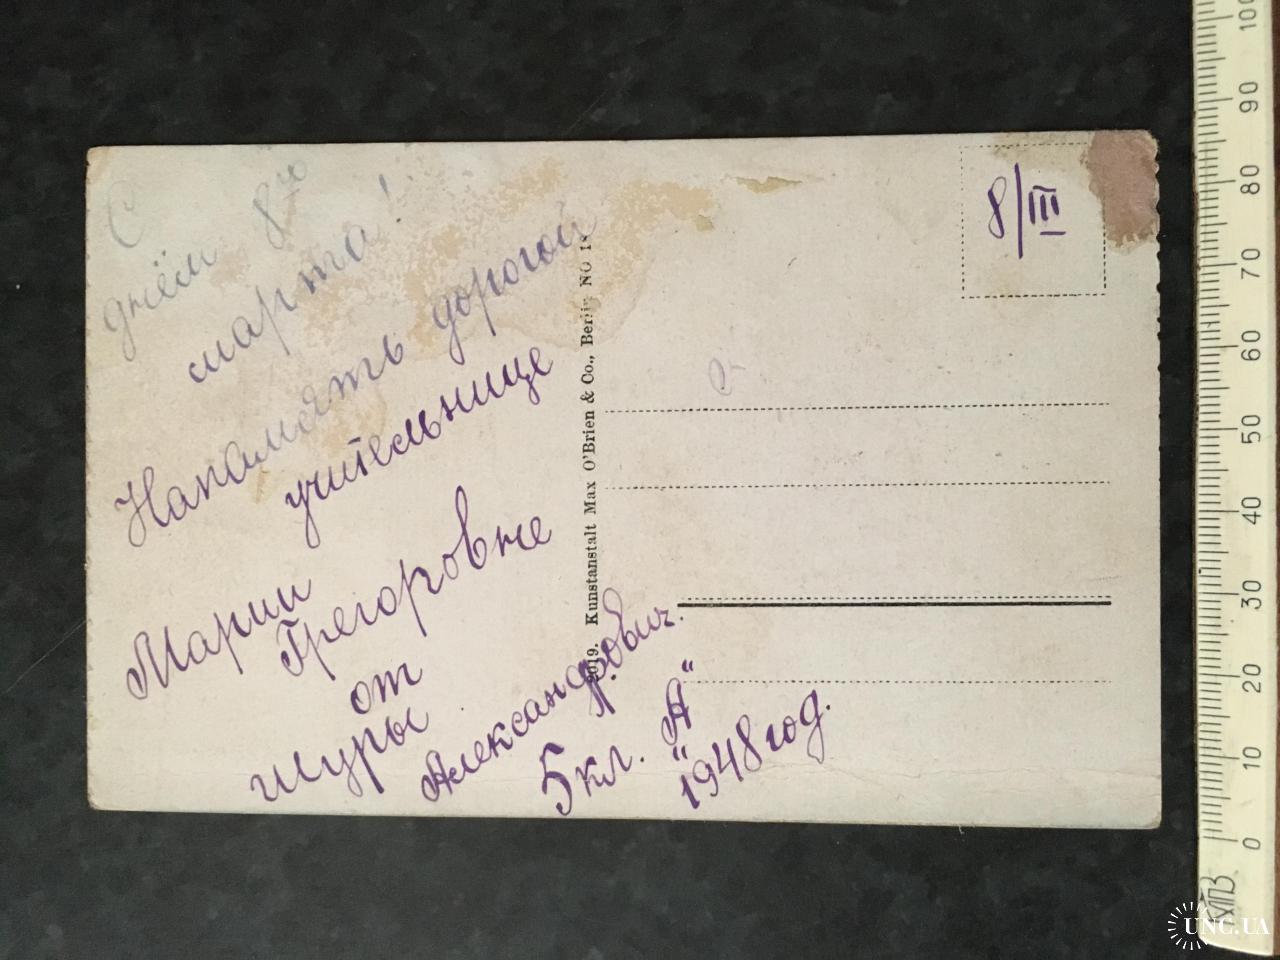 С
днём 8го
марта!
Напамять дорогой
учительнице
Марии
Грегоровне
от
Шуры
Александрович.
5кл. "А"
1948 год.
8/III
2019. Kunstanstalt Max O'Brien & Co., Berlin NO 18
0 10 20 30 40 50 60 70 80 90 100
ХПЗ
UNC.UA